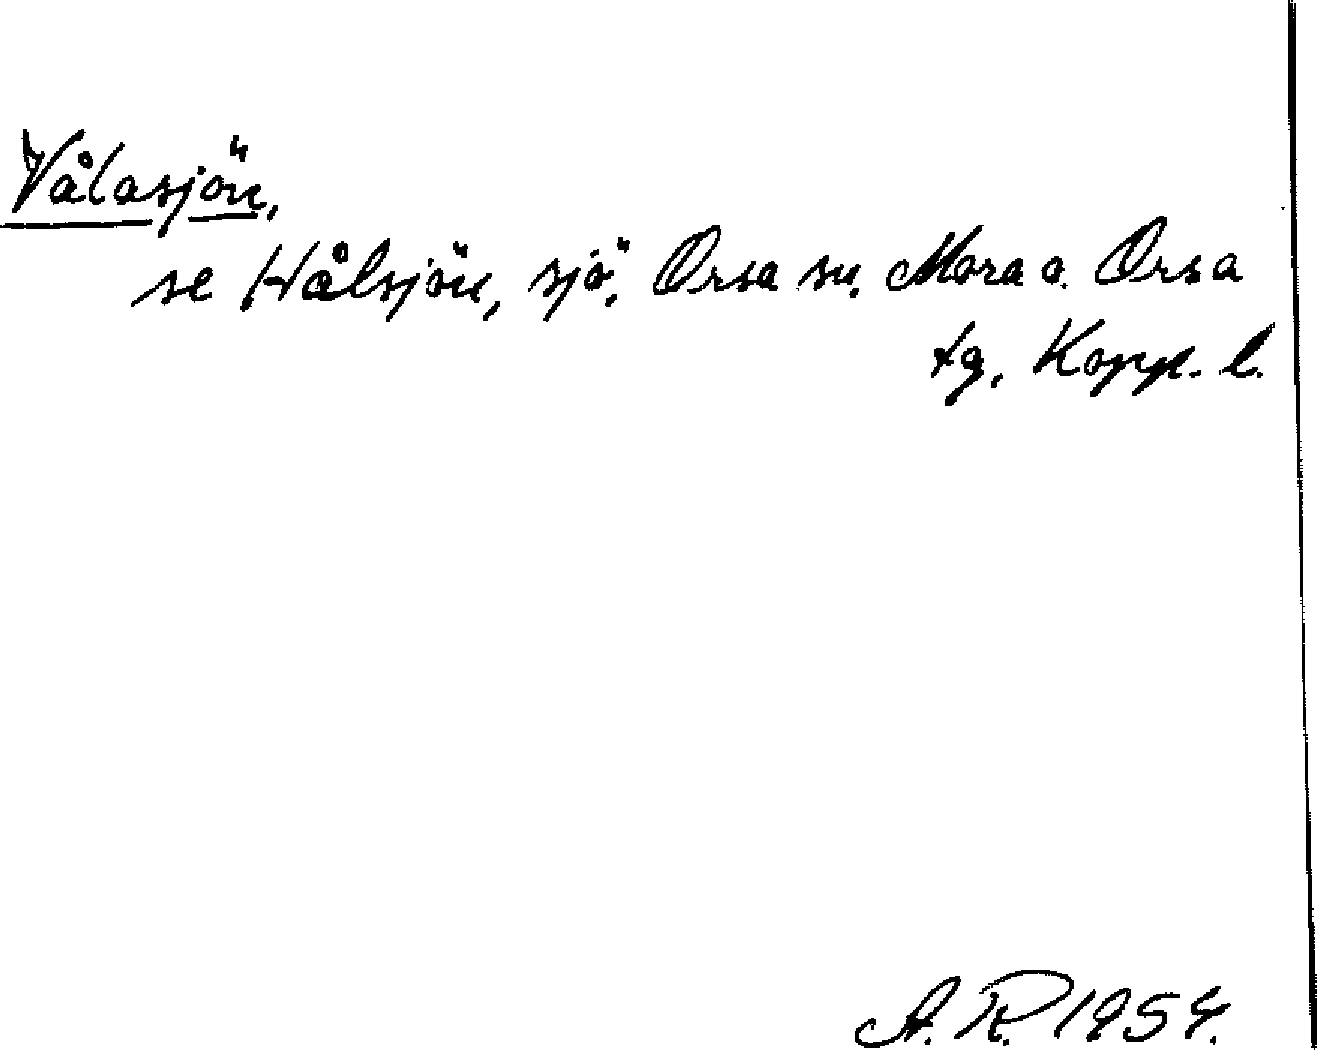 Vålasjön,
se Hålsjön, sjö, Orsa sn, Mora o. Orsa
tg, Kopp. l.
A. R. 1954.